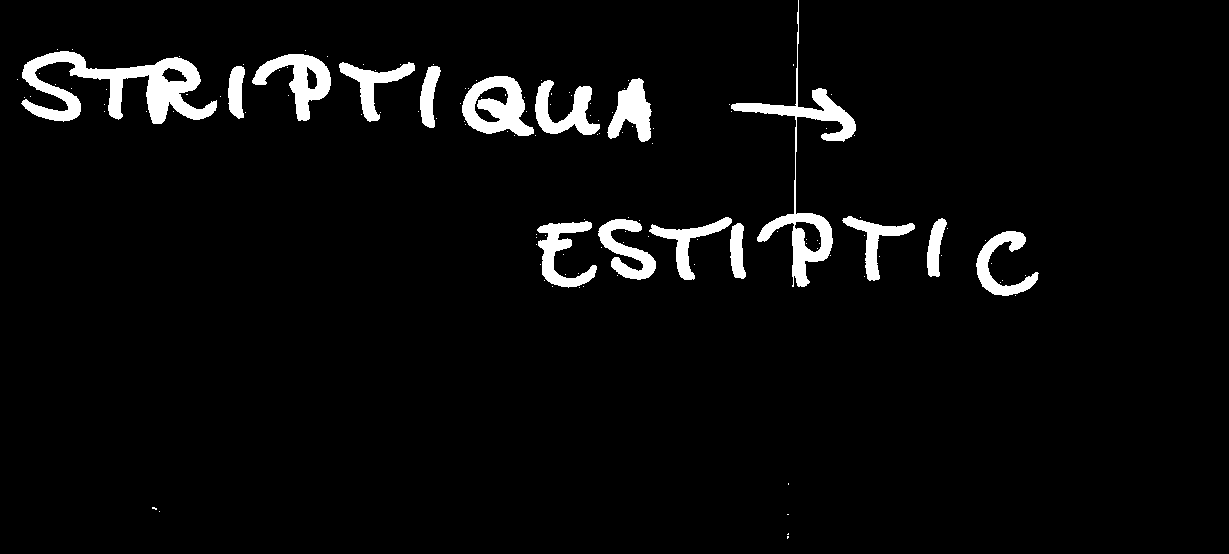 STRIPTIQUA →
ESTIPTIC